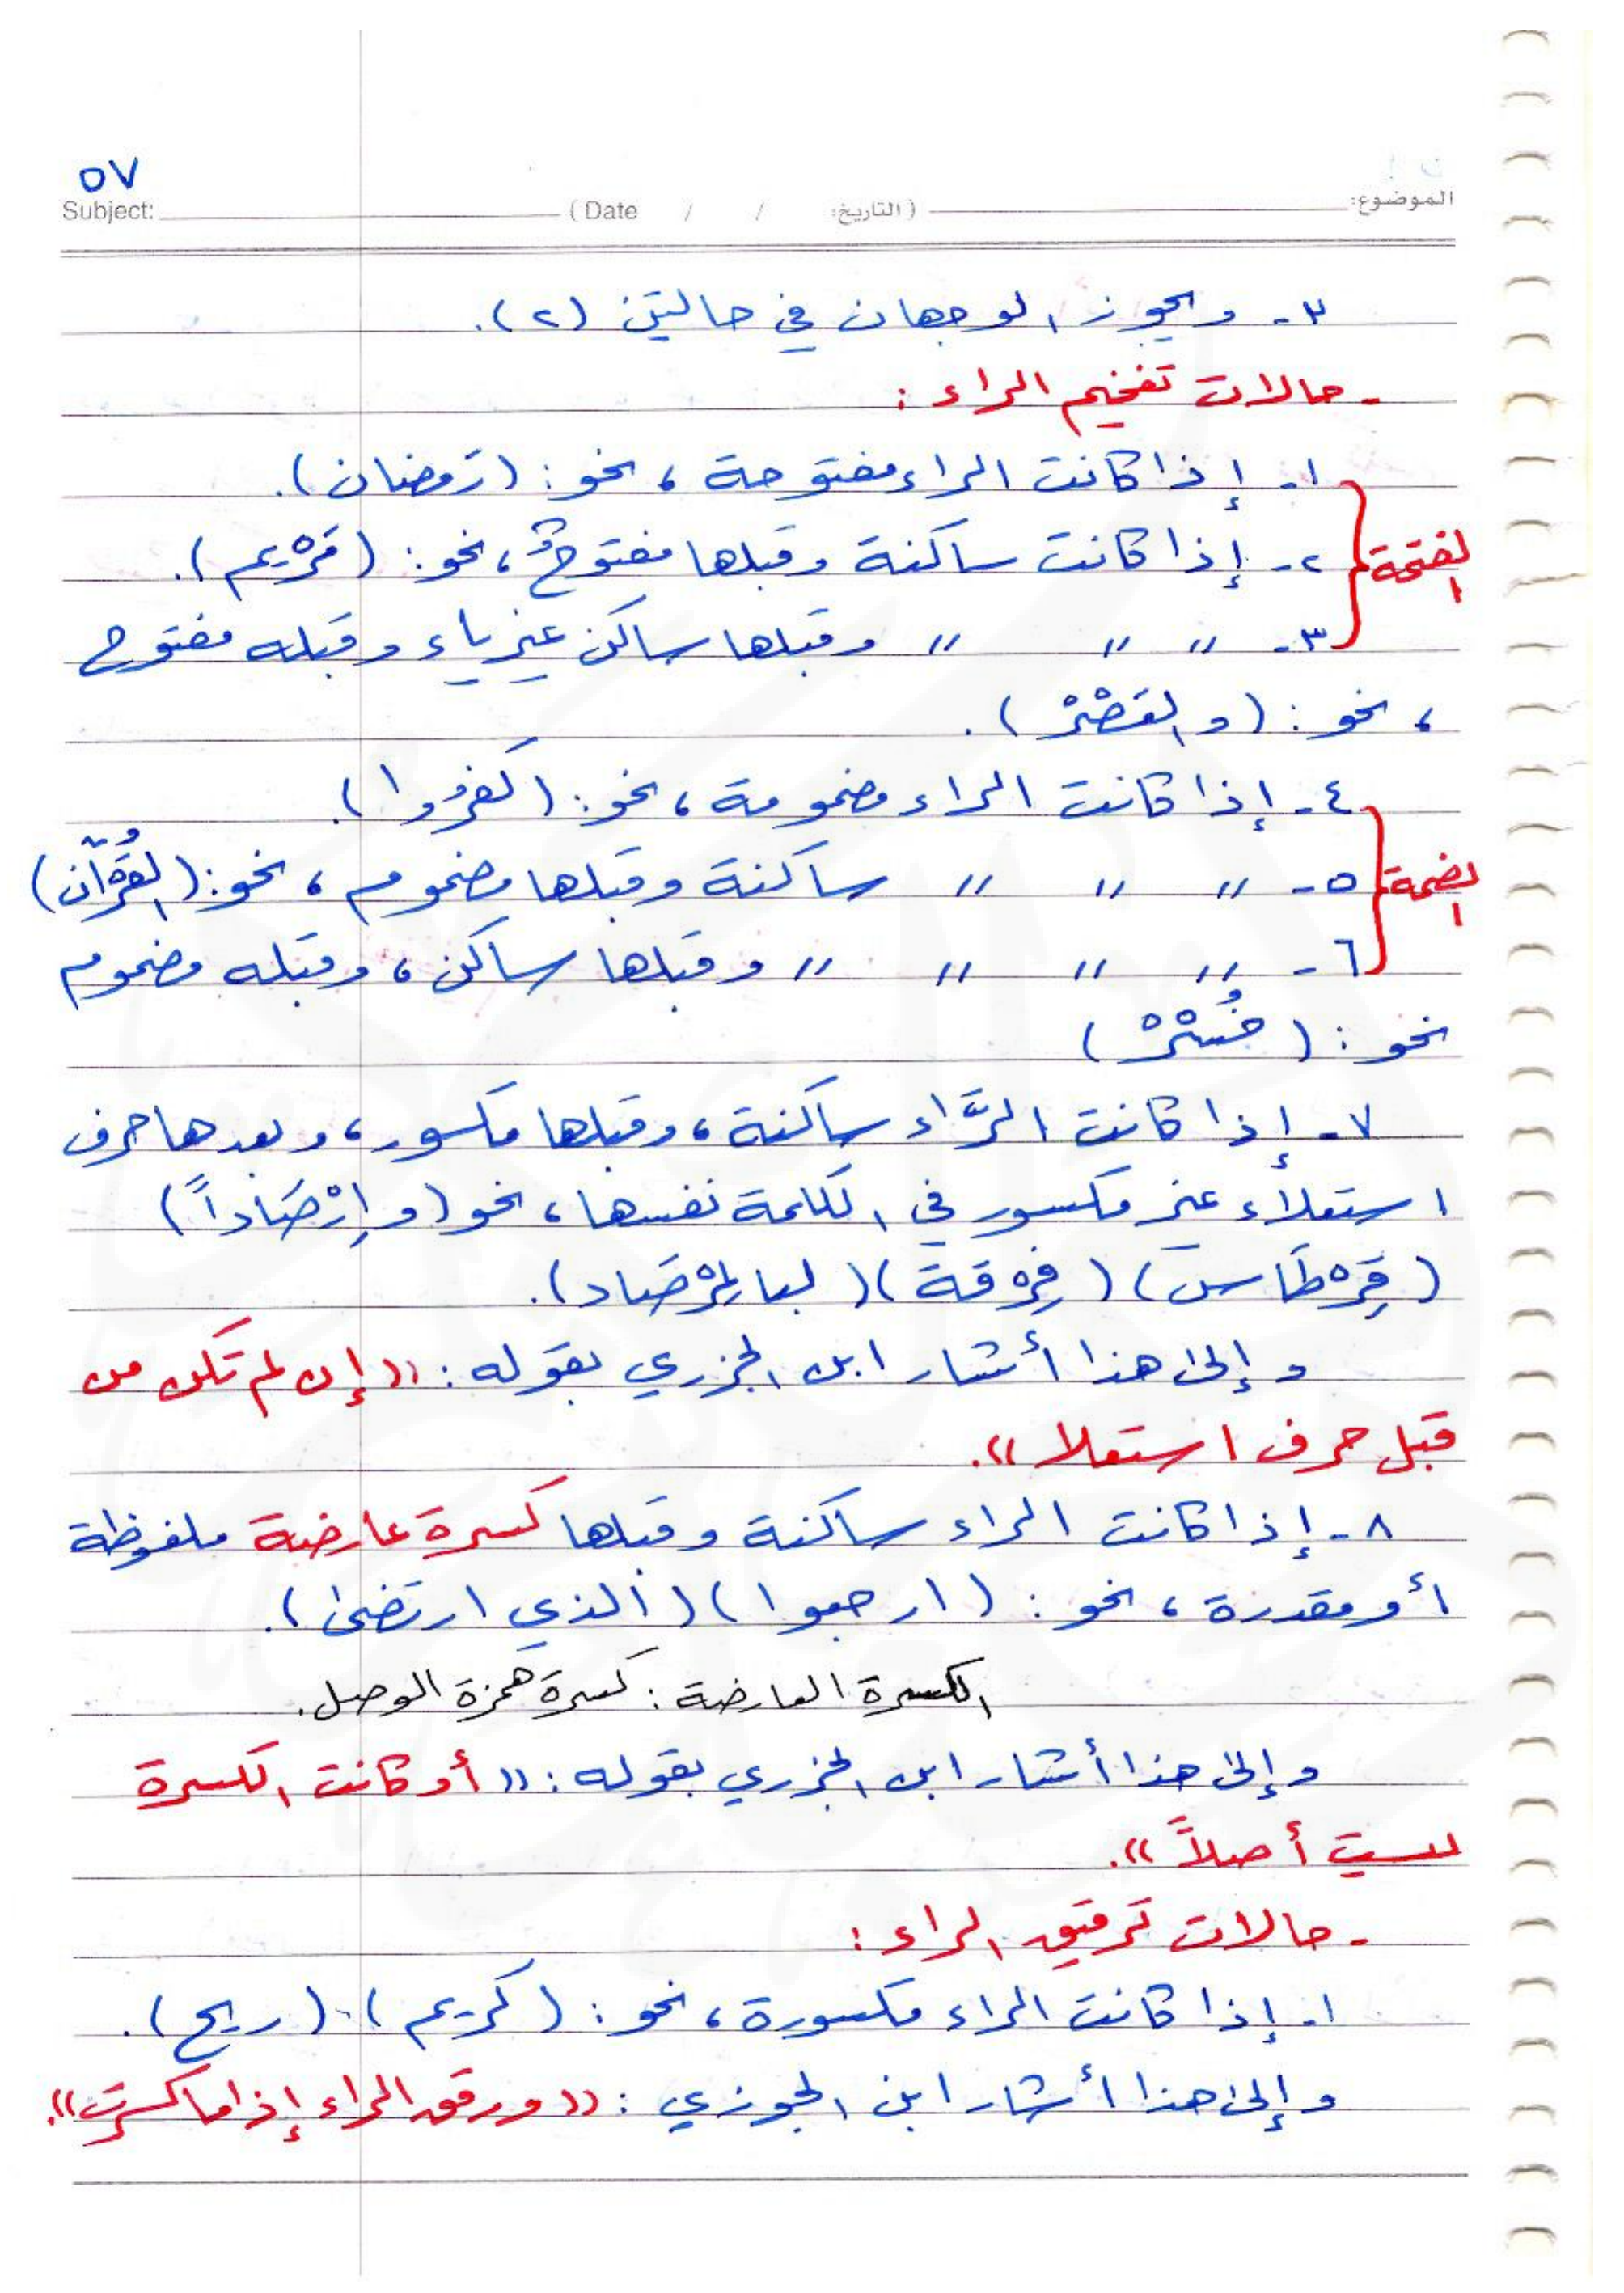 ٥٧
الموضوع: (التاريخ: / / Date) Subject:
٣- ويجوز الوجهان في حالتين (٢).
- حالات تفخيم الراء :
١- إذا كانت الراء مفتوحة ، نحو : (رَمضان).
الفتحة ٢- إذا كانت ساكنة وقبلها مفتوحٌ ، نحو : (مَرْيم).
٣- // // // وقبلها ساكن غير ياء وقبله مفتوح
، نحو : (والعَصْرْ).
٤- إذا كانت الراء مضمومة ، نحو : (كفرُوا).
الضمة ٥- // // // ساكنة وقبلها مضموم ، نحو : (القُرْآن)
٦- // // // // وقبلها ساكن ، وقبله مضموم
نحو : (خُسْرْ)
٧- إذا كانت الرَّاء ساكنة ، وقبلها مكسور ، وبعدها حرف
استعلاء غير مكسور في الكلمة نفسها ، نحو (وإِرْصَاداً)
(قِرْطَاس) (فِرْقة) (لبالمِرْصَاد).
وإلى هذا أشار ابن الجزري بقوله : «إن لم تكن من
قبل حرف استعلا».
٨- إذا كانت الراء ساكنة وقبلها كسرة عارضة ملفوظة
أو مقدرة ، نحو : (ارجعوا) (الذي ارتضى).
الكسرة العارضة : كسرة همزة الوصل.
وإلى هذا أشار ابن الجزري بقوله : «أو كانت الكسرة
ليست أصلاً».
- حالات ترقيق الراء :
١- إذا كانت الراء مكسورة ، نحو : (كريم). (ريح).
وإلى هذا أشار ابن الجوزي : «ورقق الراء إذا ما كسرت».